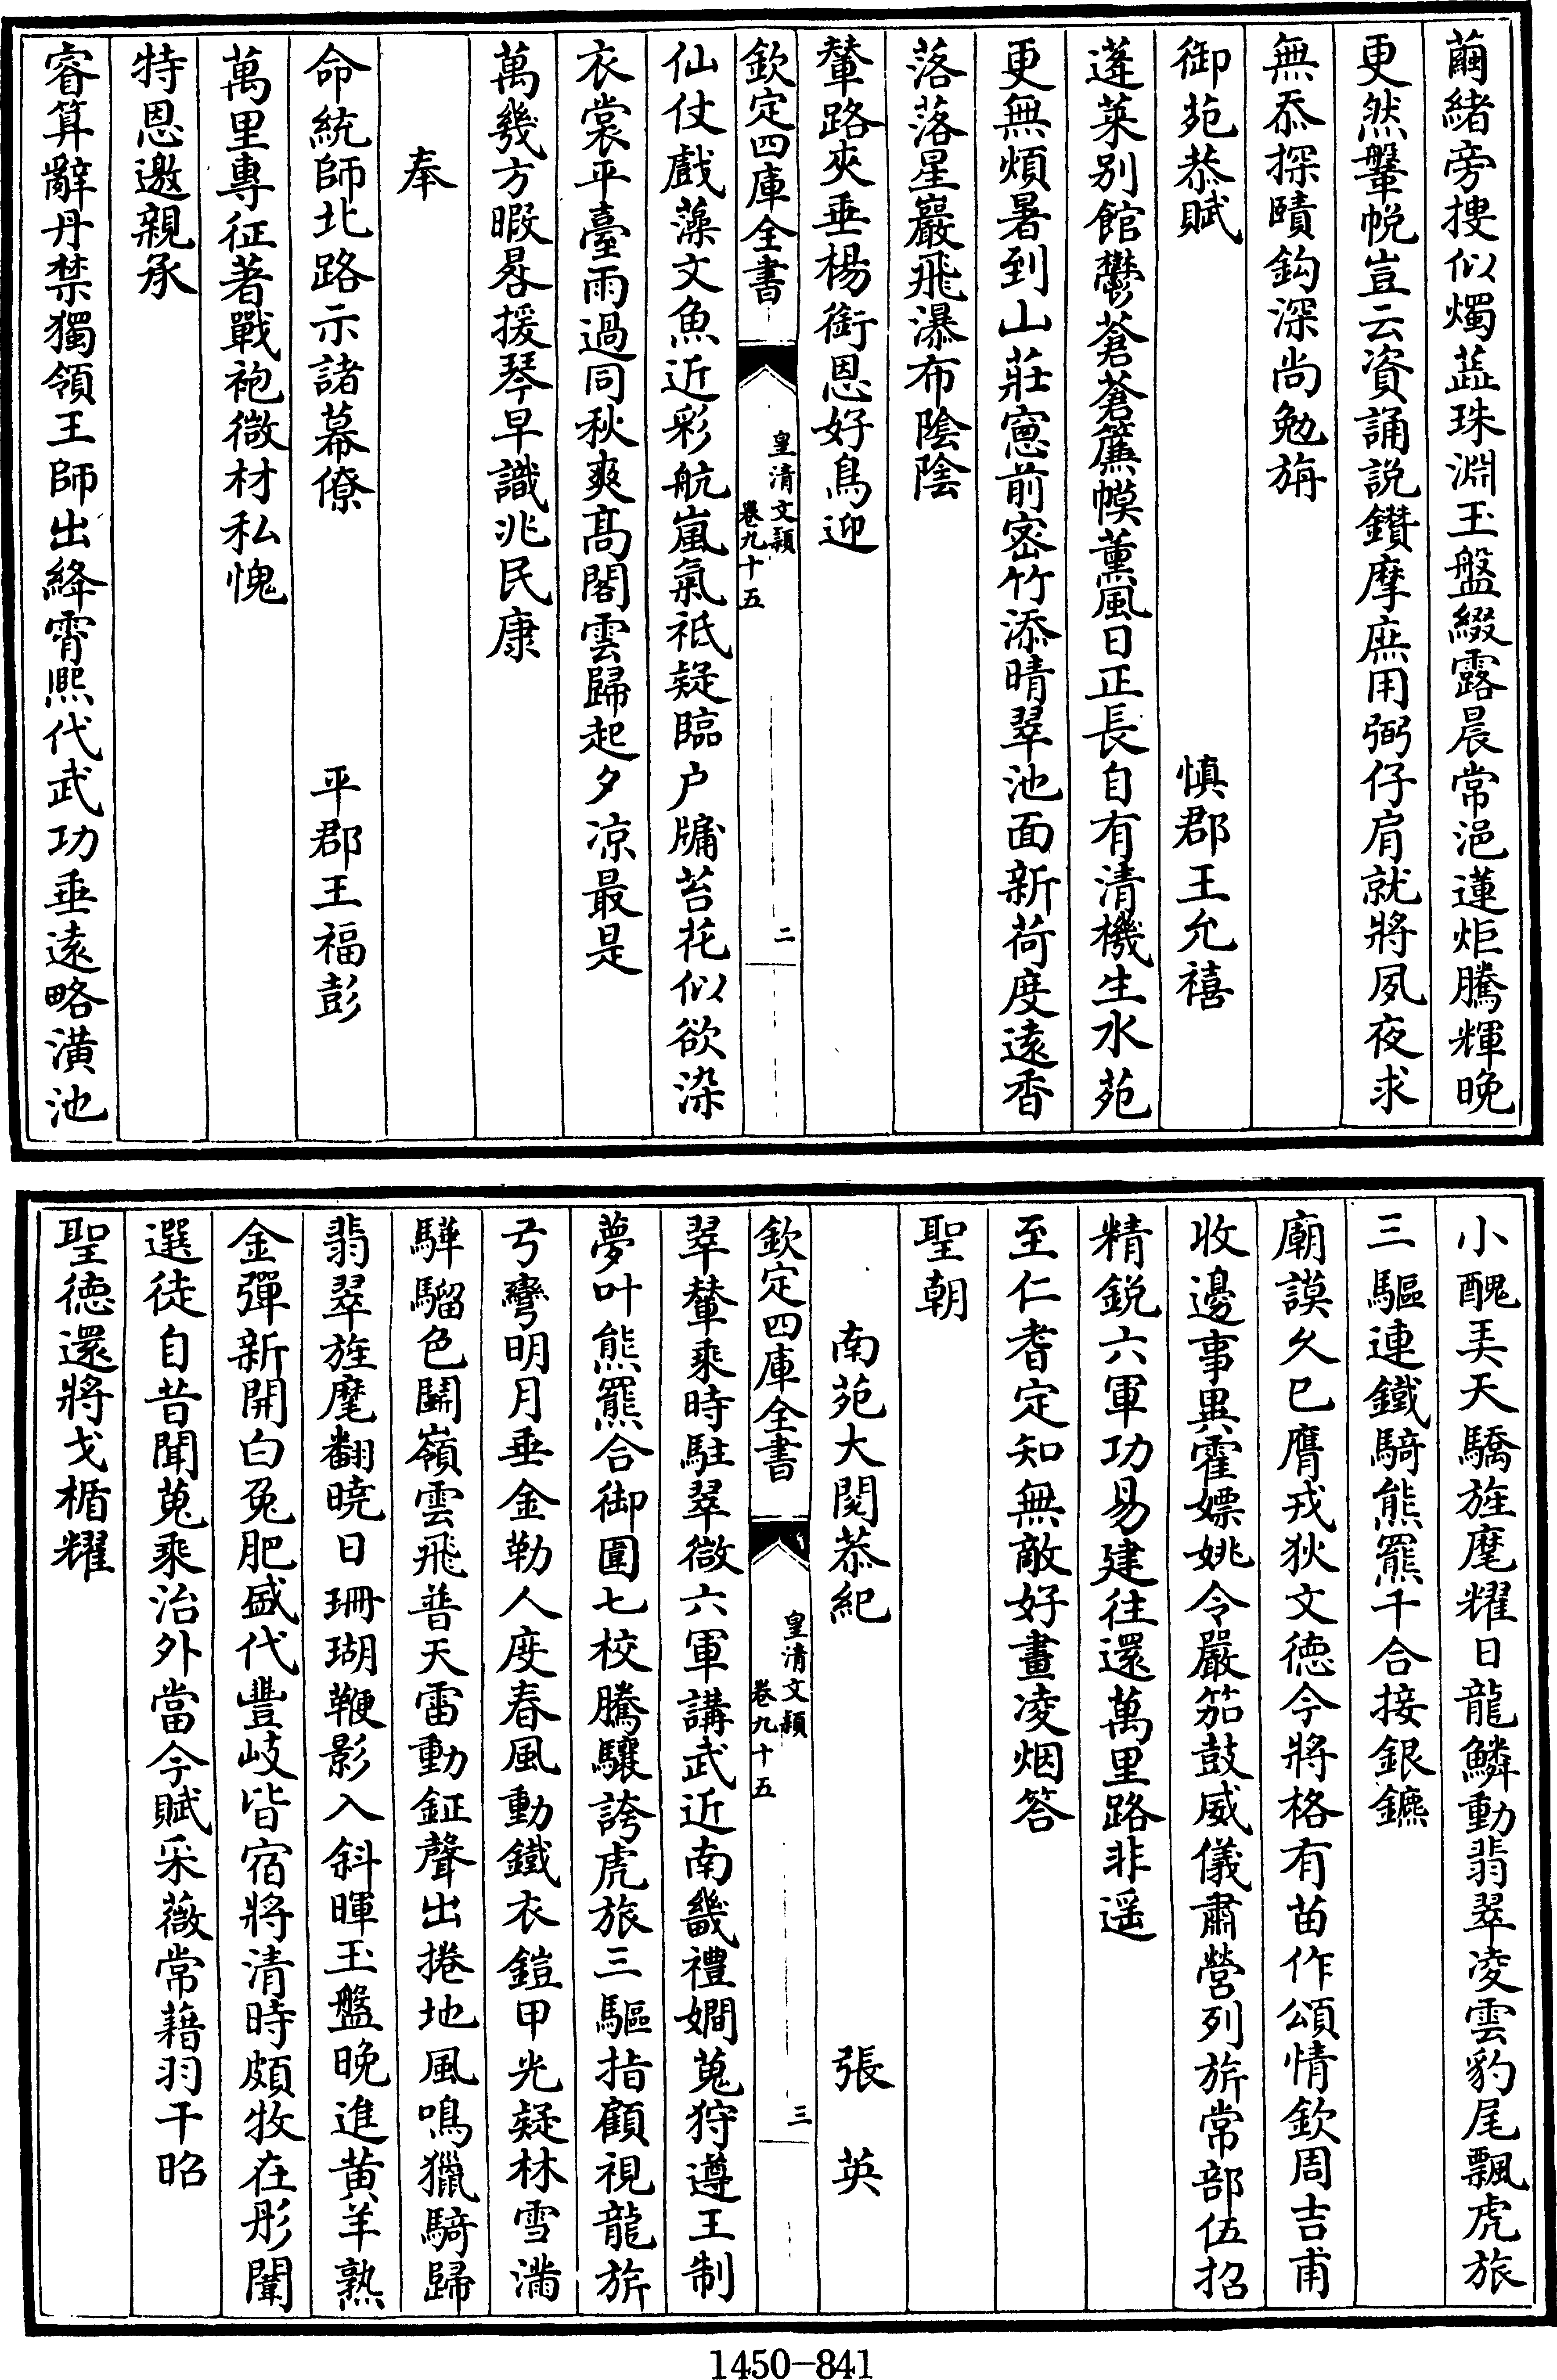 繭緒旁捜似燭蘂珠淵玉盤綴露晨常浥蓮炬騰輝晚
更然鞶帨豈云資誦説鑚摩庶用弼仔肩就將夙夜求
無忝探賾鈎深尚勉旃
御苑恭賦 慎郡王允禧
蓬萊别館鬱蒼蒼簾幙薰風日正長自有清機生水苑
更無煩暑到山莊窻前宻竹添晴翠池面新荷度逺香
落落星巖飛瀑布陰陰
輦路夾垂楊銜恩好鳥迎
欽定四庫全書 皇清文穎 卷九十五 二
仙仗戲藻文魚近彩航嵐氣祇疑臨户牖苔花似欲染
衣裳平臺雨過同秋爽髙閣雲歸起夕凉最是
萬幾方暇晷援琴早識兆民康
奉
命統師北路示諸幕僚 平郡王福彭
萬里專征著戰袍微材私愧
特恩邀親承
睿算辭丹禁獨領王師出絳霄熙代武功垂逺略潢池
小醜美天驕旌麾耀日龍鱗動翡翠凌雲豹尾飄虎旅
三驅連鐵騎熊羆千合接銀鑣
廟謨久已膺戎狄文徳今將格有苗作頌情欽周吉甫
收邊事異霍嫖姚令嚴笳鼓威儀肅營列旂常部伍招
精鋭六軍功易建往還萬里路非遥
至仁耆定知無敵好畫凌烟答
聖朝
南苑大閲恭紀 張英
欽定四庫全書 皇清文穎 卷九十五 三
翠輦乘時駐翠微六軍講武近南畿禮嫺蒐狩遵王制
夢叶熊羆合御圍七校騰驤誇虎旅三驅指顧視龍旂
弓彎明月垂金勒人度春風動鐵衣鎧甲光疑林雪滿
驊騮色鬭嶺雲飛普天雷動鉦聲出捲地風鳴獵騎歸
翡翠旌麾翻曉日珊瑚鞭影入斜暉玉盤晚進黄羊熟
金彈新開白兔肥盛代豐岐皆宿將清時頗牧在彤闈
選徒自昔聞蒐乘治外當今賦采薇常藉羽干昭
聖徳還將戈楯耀
1450-841